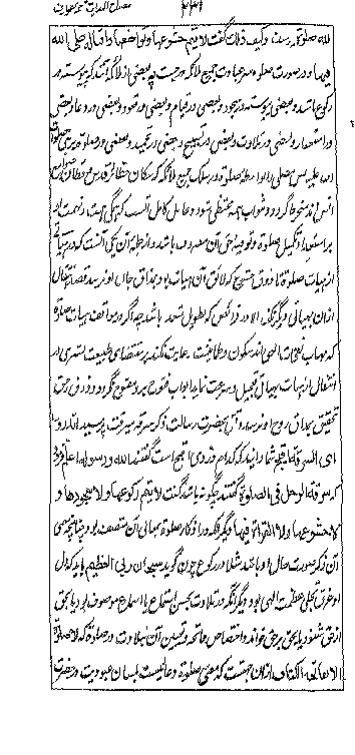 ۲۴۱
لله صلوة پرسیدند و کیف ذلک گفت لا یتم خشوعها و تواضعها و اقباله علی الله
فیها و در صورت صلوة سر عبادت جمیع ملائکه مدرجست چه بعضی از ملائکه آنند که پیوسته در
رکوع باشند و بعضی پیوسته در سجود و بعضی در قیام و بعضی در قعود و بعضی در دعا و بعضی
در استغفار و بعضی در تلاوت و بعضی در تسبیح و بعضی در تحمید و بعضی در صلوة بر نبی
الله علیه پس مصلی را بواسطه صلوة در سلک جمیع ملائکه که سکان حظائر قدس و قطان صوامع
انس اند منخرط گردد و بثواب همه محتظی شود و عامل کامل آنست که همگی همت و نهمت او
بر استعمار و تکمیل صلوة و توفیه حق آن مصروف باشد و از جمله آن یکی آنست که در هیأتی
از هیأت صلوة تا ذوق خشوع که لائق آن هیأت بود بمذاق جان او نرسد قصد انتقال
از ان بهیأتی دیگر نکند الا در فرائض که بتطویل باشد چه اگر در مواقف هیأت صلوة
که مهاب نفحات الهی اند سکون و طمانینت رعایت نکند و بر مقتضای طبیعت بشری در
انتقال از هیأت بهیأت تعجیل و سرعت نماید ابواب فتوح بر وی مفتوح نگردد و ذوق رحیق
تحقیق بمذاق روح او نرسد روزی بحضرت رسالت ذکر سرقه میرفت پرسید اتدرون
ای السرقة اقبح شما را کدام دزدی اقبح است گفتند الله و رسوله اعلم فرمود
که سرقة الرجل فی الصلوة گفتند چگونه باشد گفت لا یتم رکوعها و لا سجودها و
لا خشوعها و لا القراءة فیها و دیگر آنکه در اذکار صلوة بمعانی آن متصف بود چنانکه معنی
آن ذکر صورت حال او باشد مثلا در رکوع چون گوید سبحان ربی العظیم باید که دل
او غرق تجلی عظمت الهی بود و دیگر آنکه در تلاوت بحسن استماع یا اسماع موصوف بود یا بحق
از حق شنود یا بحق بر حق خواند و اختصاص فاتحه و تعیین آن بتلاوت در صلوة که لا صلوة
الا بفاتحة الکتاب از ان جهتست که معنی صلوة دعائیست بلسان عبودیت در حضرت